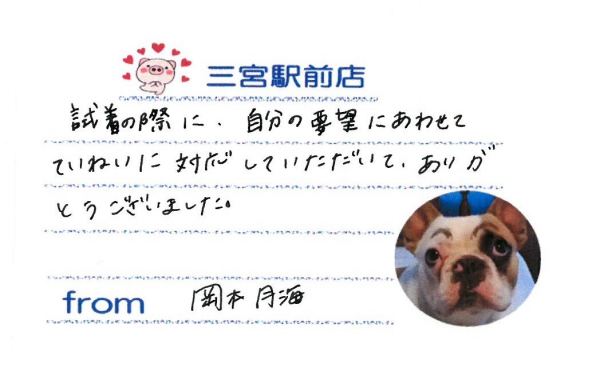 三宮駅前店
試着の際に、自分の要望にあわせて
ていねいに対応していただいて、ありが
とうございました。
from 岡本月海